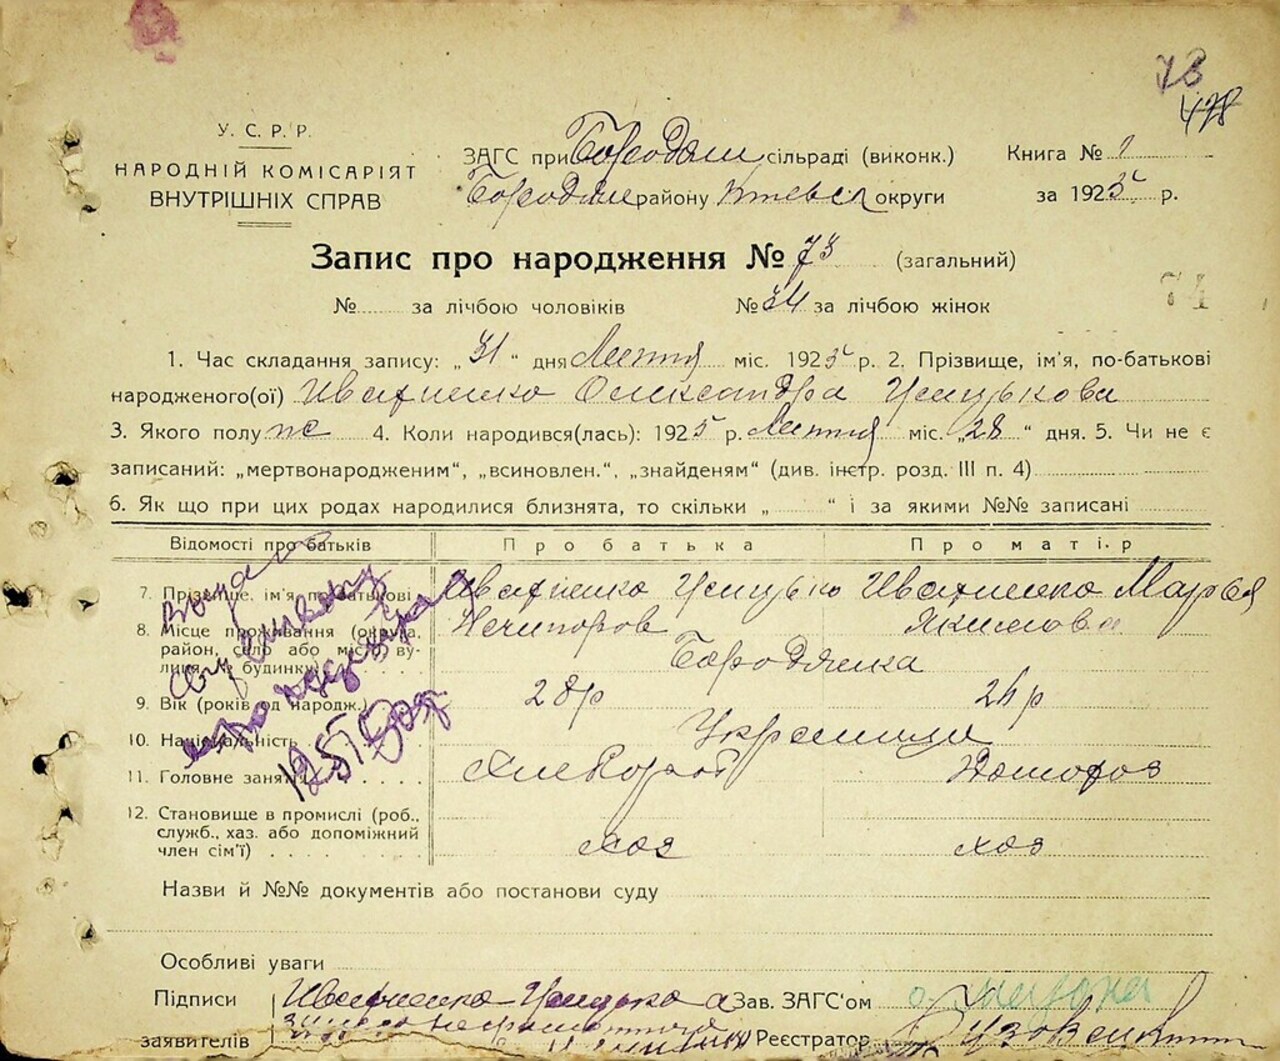 73
478
У. С. Р. Р.
НАРОДНІЙ КОМІСАРІЯТ
ВНУТРІШНІХ СПРАВ
ЗАГС при Бородян сільраді (виконк.)
Бородян району Київськ округи
Книга № 1
за 1925 р.
Запис про народження № 73 (загальний)
74
№ за лічбою чоловіків № 34 за лічбою жінок
1. Час складання запису: „31“ дня Липня міс. 1925 р. 2. Прізвище, ім'я, по-батькові
народженого(ої) Ивахненко Олександра
3. Якого полу ж 4. Коли народився(лась): 1925 р. Липня міс. „28“ дня. 5. Чи не є
записаний: „мертвонародженим“, „всиновлен.“, „знайденям“ (див. інстр. розд. III п. 4)
6. Як що при цих родах народилися близнята, то скільки „ “ і за якими №№ записані
Відомості про батьків Про батька Про матір
7. Прізвище, ім'я, по-батькові Ивахненко Ивахненко Марья
Нечипоров Якимова
8. Місце проживання (округа, район, село або місто, ву-
лиця, № будинку) Бородянка
9. Вік (років од народж.) 28 р 26 р
10. Національність Українці
11. Головне заняття Хлебороб Домохоз
12. Становище в промислі (роб.,
служб., хаз. або допоміжний
член сім'ї) хоз хоз
Назви й №№ документів або постанови суду
Особливі уваги
Підписи Ивахненко Зав. ЗАГС'ом
заявителів Реєстратор